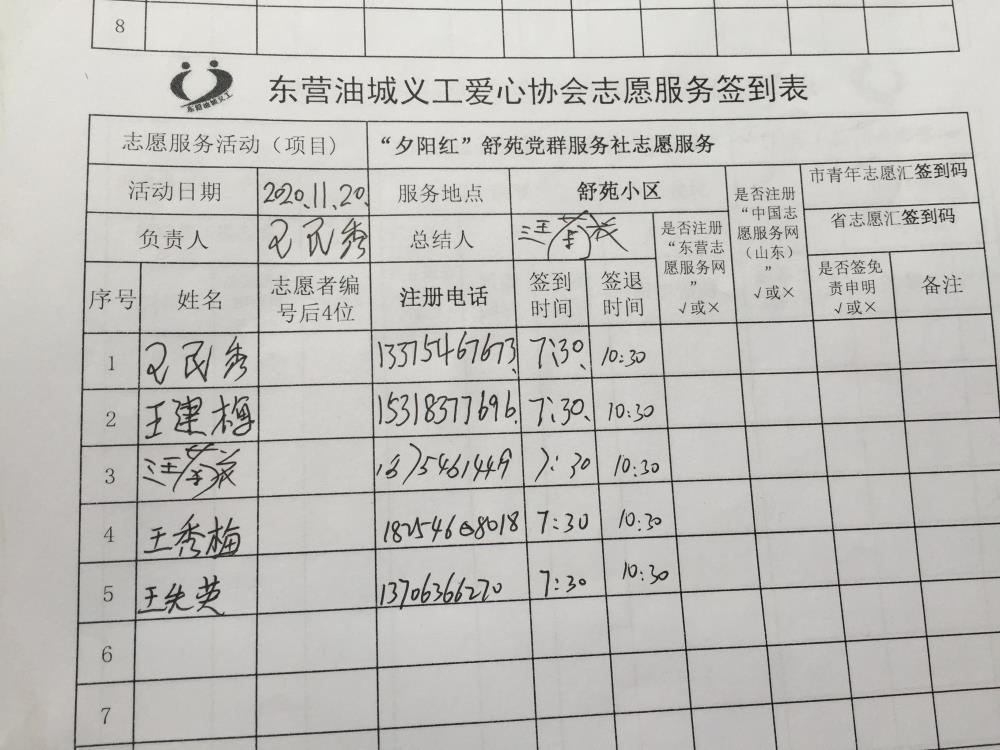 8
东营油城义工
东营油城义工爱心协会志愿服务签到表
志愿服务活动（项目） “夕阳红”舒苑党群服务社志愿服务
活动日期 2020.11.20. 服务地点 舒苑小区
负责人 王民秀 总结人
是否注册“东营志愿服务网”√或×
是否注册“中国志愿服务网（山东）”√或×
市青年志愿汇签到码
省志愿汇签到码
是否签免责申明√或×
备注
序号 姓名 志愿者编号后4位 注册电话 签到时间 签退时间
1 王民秀 13375467673 7:30 10:30
2 王建梅 15318377696 7:30 10:30
3 7:30 10:30
4 王秀梅 18254608018 7:30 10:30
5 王先英 13706366270 7:30 10:30
6
7